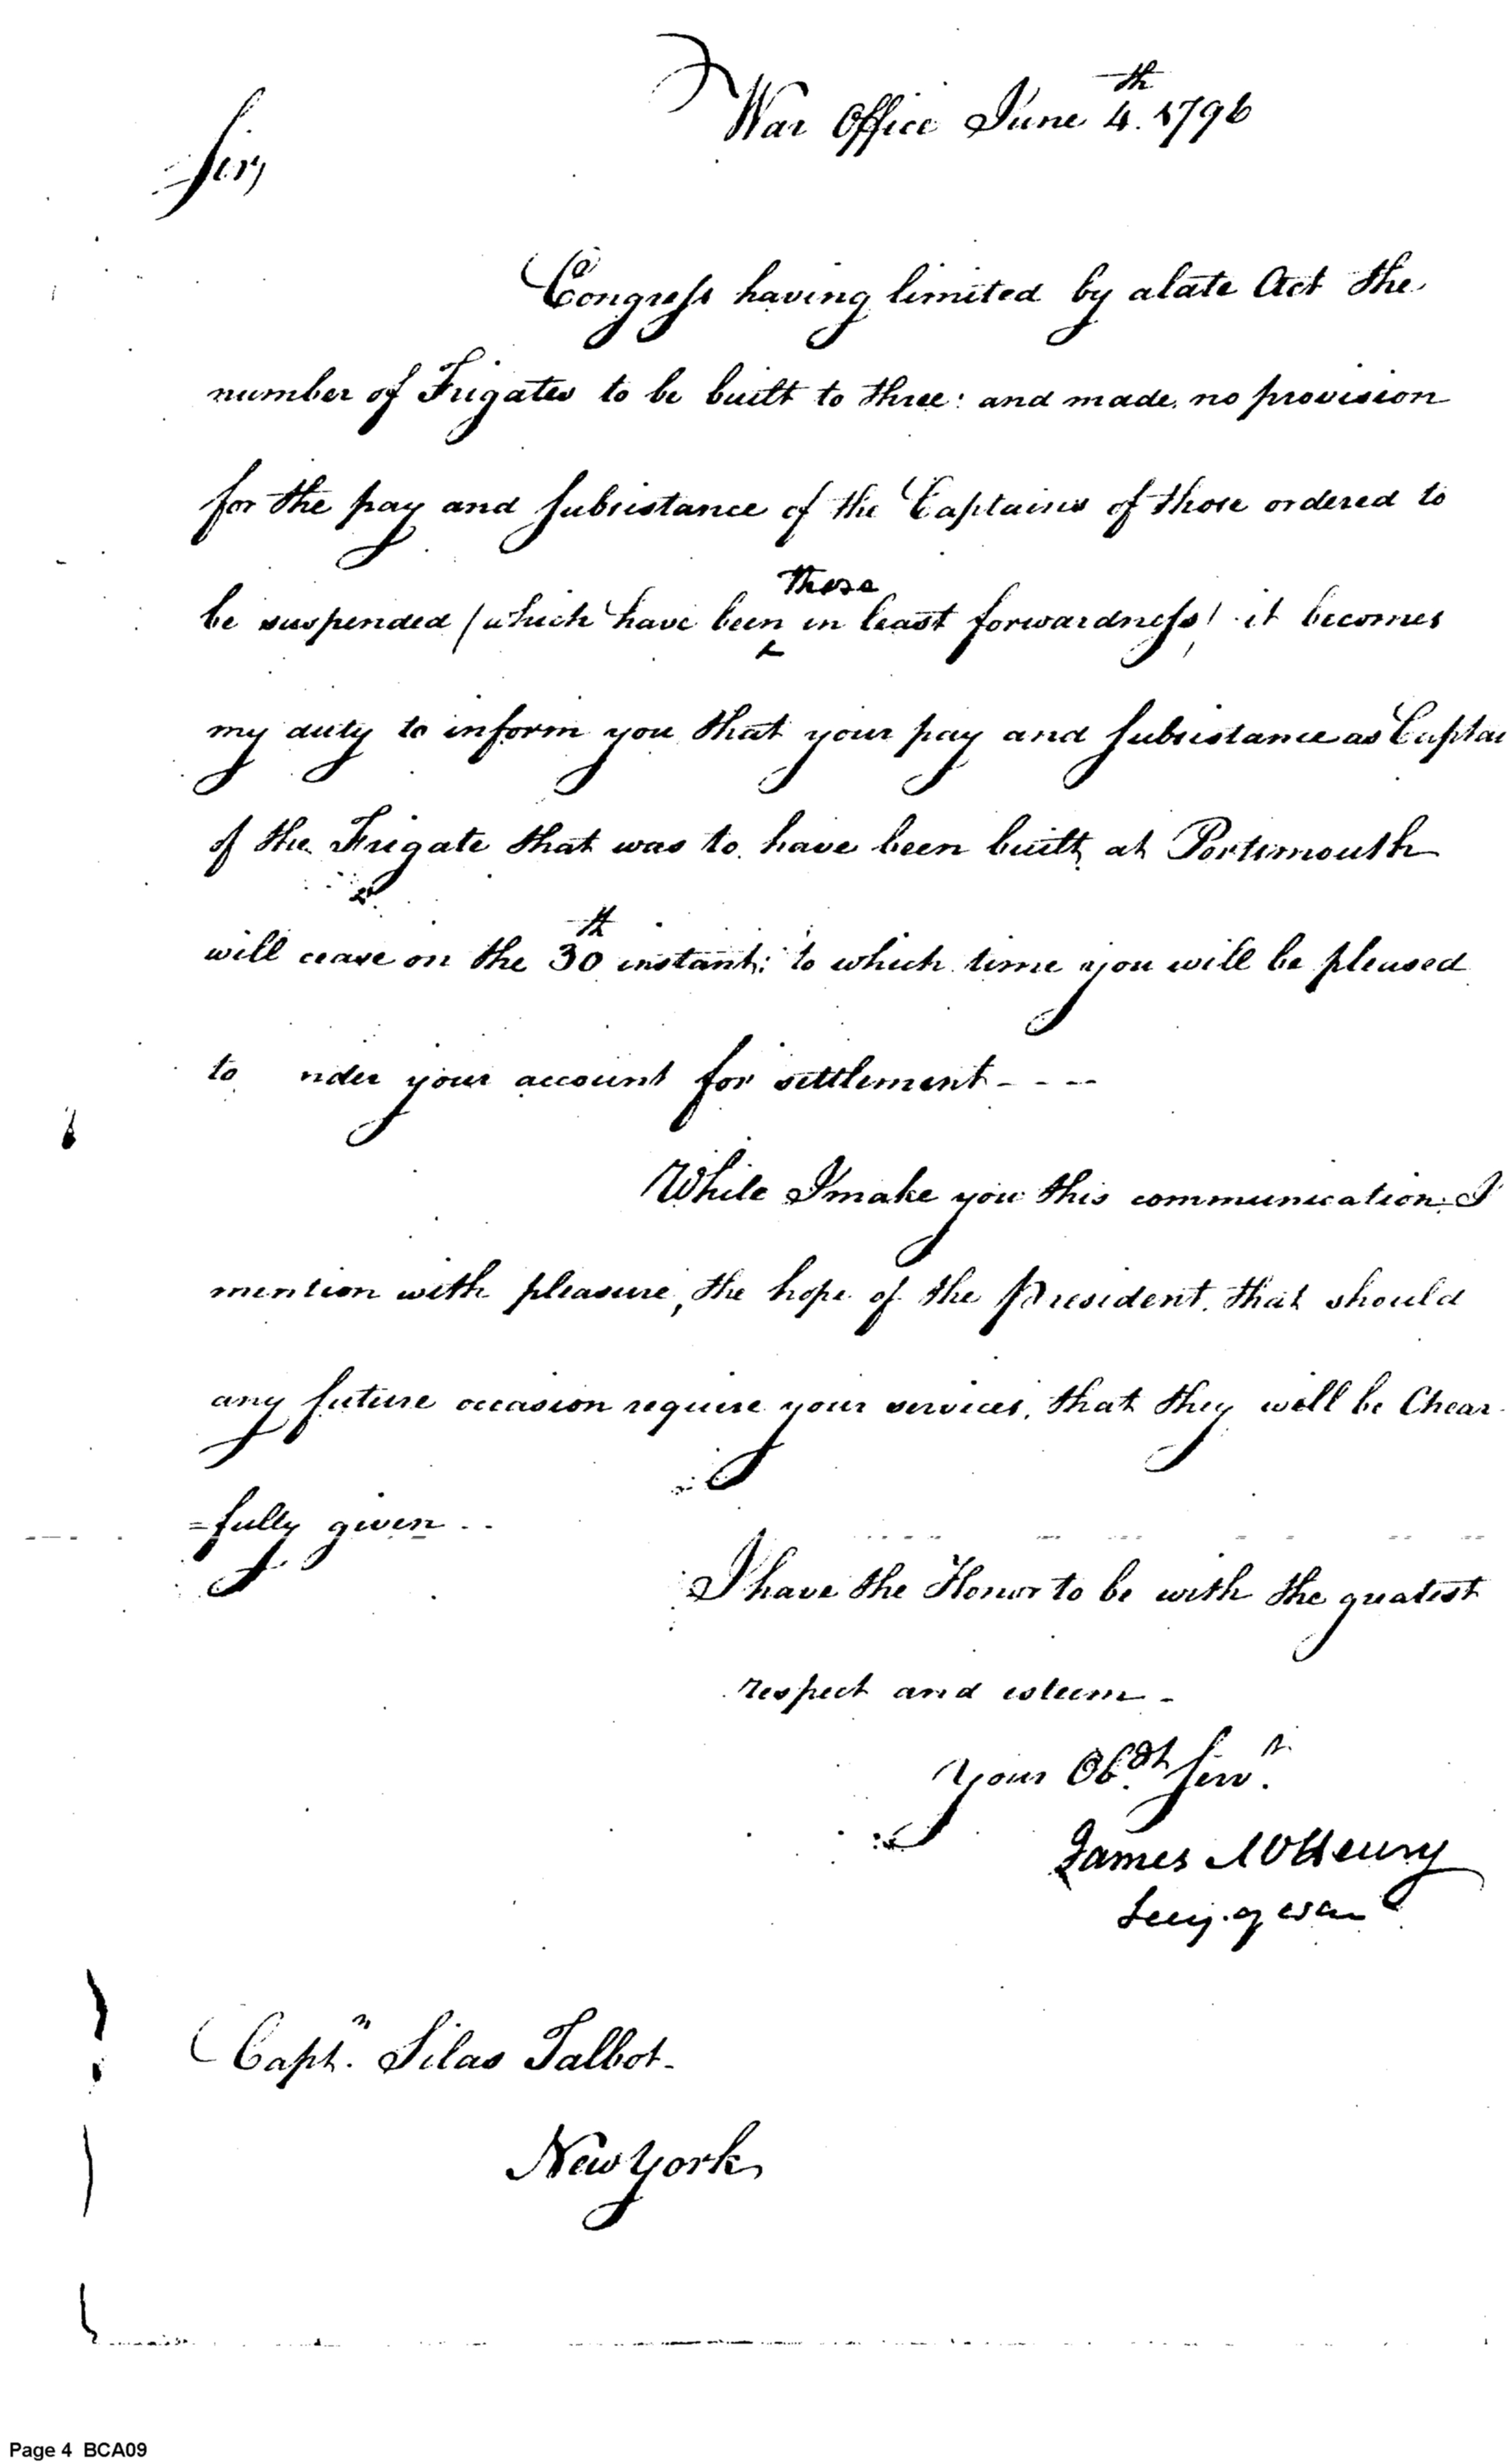 War Office June 4.th 1796
Sir,
Congress having limited by a late Act the
number of Frigates to be built to three: and made no provision
for the pay and Subsistance of the Captains of those ordered to
those
be suspended (which have been ^ in least forwardness) it becomes
my duty to inform you that your pay and Subsistance as Captai
of the Frigate that was to have been built at Portsmouth
will cease on the 30th instant: to which time you will be pleased
to nder your account for settlement - - - -
While I make you this communication: I
mention with pleasure, the hope of the President, that should
any future occasion require your services, that they will be Chear-
=fully given - -
I have the Honor to be with the greatest
respect and esteem -
Your Ob.dt Serv.t
James McHenry
Secy. of War
Capt.n Silas Talbot -
New York
Page 4 BCA09